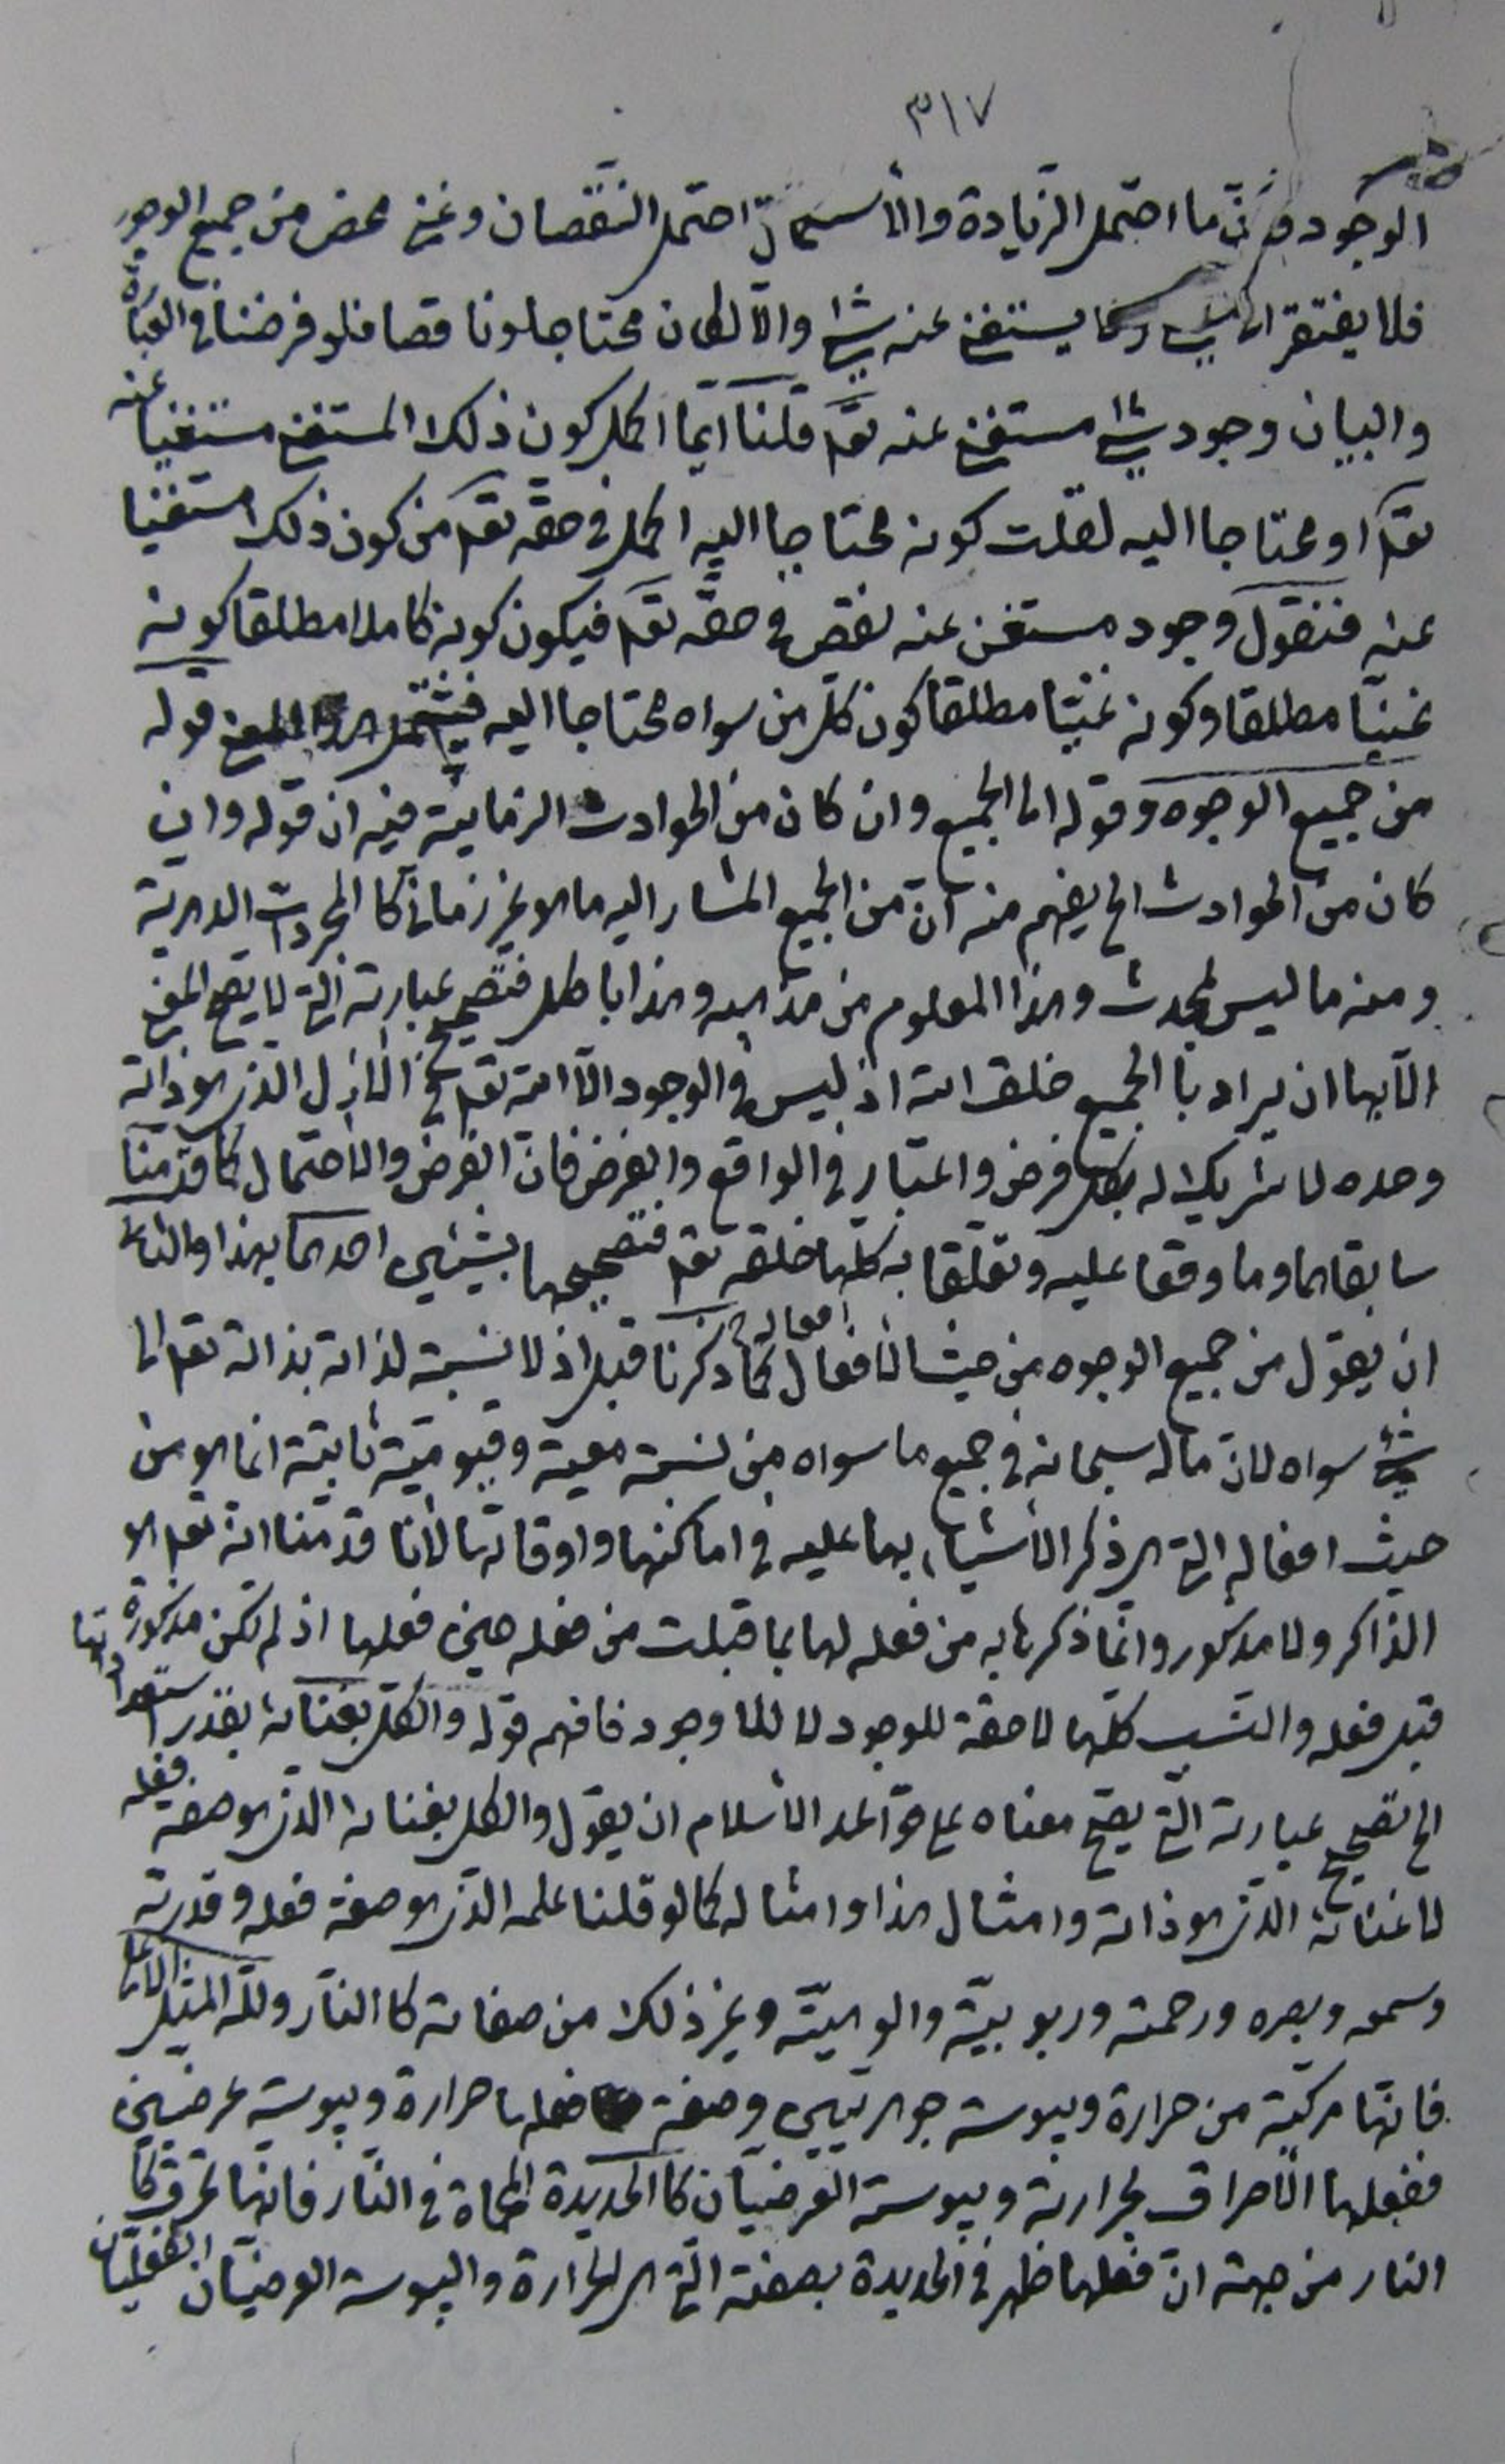 ٣١٧
الوجود فإنّ ما احتمل الزيادة والا احتمل النّقصان وغنى محض من جميع الوجوه
فلا يفتقر الى شئ وكما يستغنى عنه شئ والّا لكان محتاجا ونا قصا فلو فرضنا فى العبارة
والبيان وجود شئ مستغن عنه تعم قلنا ايّما اكمل كون ذلك المستغنى مستغنيا عنه
تعم او محتاجا اليه لقلت كونه محتاجا اليه اكمل فى حقه تعم من كون ذلك مستغنيا
عنه فنقول وجود مستغن عنه نقص فى حقّه تعم فيكون كونه كاملا مطلقا كونه
غنيّا مطلقا وكونه غنيّا مطلقا كون كلّ من سواه محتاجا اليه فيشتمل هذا المعنى قوله
من جميع الوجوه وقوله الى الجميع وان كان من الحوادث الزمانيّة فيه ان قوله وان
كان من الحوادث الخ يفهم منه انّ من الجميع المشار اليه ما هو غير زمانى كا المجردات الدهرية
ومنه ما ليس بمحدث وهذا المعلوم من مذهبه وهذا باطل فتصحيح عبارته التى لا يصح المعنى
الّا بها ان يراد با الجميع خلق الله اذ ليس فى الوجود الّا الله تعم فى الازل الذى هو ذاته
وحده لا شريك له بكل فرض واعتبار فى الواقع والفرض فان الفرض والاحتمال كما قدّمنا
سابقا هما وما وقعا عليه وتعلّقا به كلّها خلقه تعم فتصحيحها بشيئين احدهما بهذا والثانى
ان يقول من جميع الوجوه من حيث الافعال افعاله كما ذكرنا قبل اذ لا نسبة لذاته بذاته تعم الى
شئ سواه لانّ ما له سبحانه فى جميع ما سواه من نسبة معية وقيوميّة ثابتة انما هو من
حيث افعاله التى هى ذكر الأشياء بها عليه فى اماكنها واوقاتها لأنّا قدّمنا انه تعم هو
الذاكر ولا مذكور وانّما ذكرها به من فعله لها بما قبلت من فعله حين فعلها اذ لم تكن مذكورة
قبل فعله والنسب كلّها لاحقة للوجود لا للا وجود فافهم قوله والكلّ بغنائه بقدر استعداداتها
الخ تصحيح عبارته التى يصحّ معناه على قواعد الأسلام ان يقول والكل بغنائه الذى هو صفة فعله
لا غنائه الذى هو ذاته وامثال هذا وامثاله كما لو قلنا علمه الذى هو صفة فعله وقدرته
وسمعه وبصره ورحمته وربوبيّته والوهيّته وغير ذلك من صفاته كا النّار ولله المثل الاعلى
فانّها مركّبة من حرارة ويبوسة جوهريّتين وصفة فعلها حرارة ويبوسة عرضيتين
ففعلها الاحراق بحرارته ويبوسته العرضيّتان كا الحديدة المحماة فى النّار فانّها تحرق كما
النار من جهة انّ فعلها ظهر فى الحديدة بصفته التى هى الحرارة واليبوسة العرضيّتان الفعليّتان